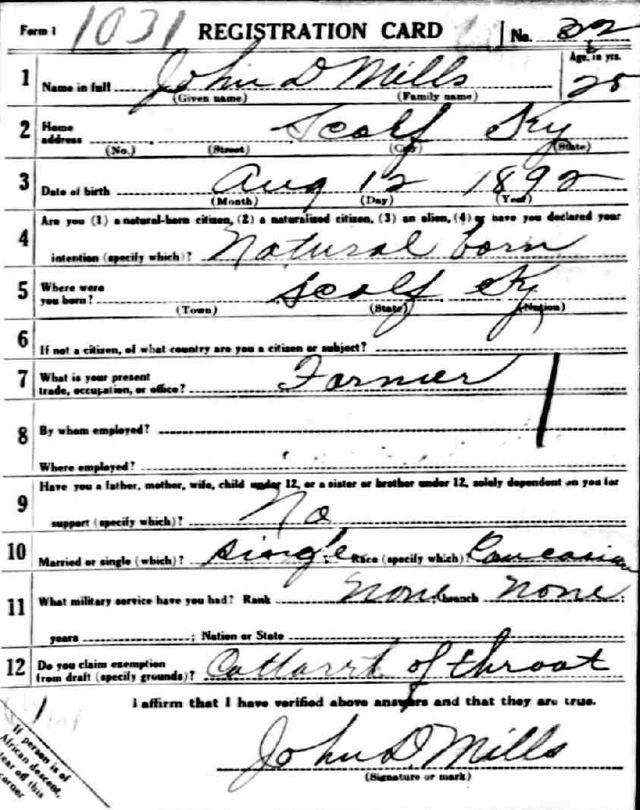 Form 1 1031 REGISTRATION CARD No. 22
1 Name in full John D Mills Age, in yrs.
(Given name) (Family name) 25
2 Home address Scalf Ky
(No.) (Street) (City) (State)
3 Date of birth Aug 12 1892
(Month) (Day) (Year)
4 Are you (1) a natural-born citizen, (2) a naturalized citizen, (3) an alien, (4) or have you declared your
intention (specify which)? Natural born
5 Where were you born? Scalf Ky
(Town) (State) (Nation)
6 If not a citizen, of what country are you a citizen or subject?
7 What is your present trade, occupation, or office? Farmer
8 By whom employed?
Where employed?
9 Have you a father, mother, wife, child under 12, or a sister or brother under 12, solely dependent on you for
support (specify which)? No
10 Married or single (which)? single Race (specify which)? Caucasian
11 What military service have you had? Rank none; branch none;
years ; Nation or State
12 Do you claim exemption from draft (specify grounds)? Cattarrh of throat
I affirm that I have verified above answers and that they are true.
John D. Mills
(Signature or mark)
If person is of
African descent,
tear off this
corner